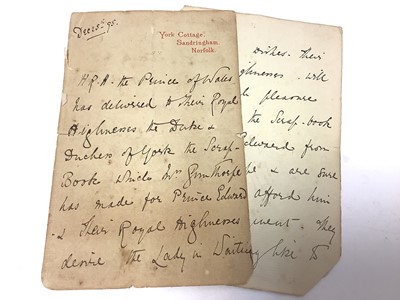 Dec 15th 95.
York Cottage,
Sandringham,
Norfolk.
H.R.H. the Prince of Wales
has delivered to Their Royal
Highnesses the Duke &
Duchess of York the Scrap-
Book which Mrs
has made for Prince Edward
& Their Royal Highnesses
desire the Lady in Waiting
wishes. Their
will
pleasure
the Scrap-book
Edward from
& are sure
afford him
They
like to